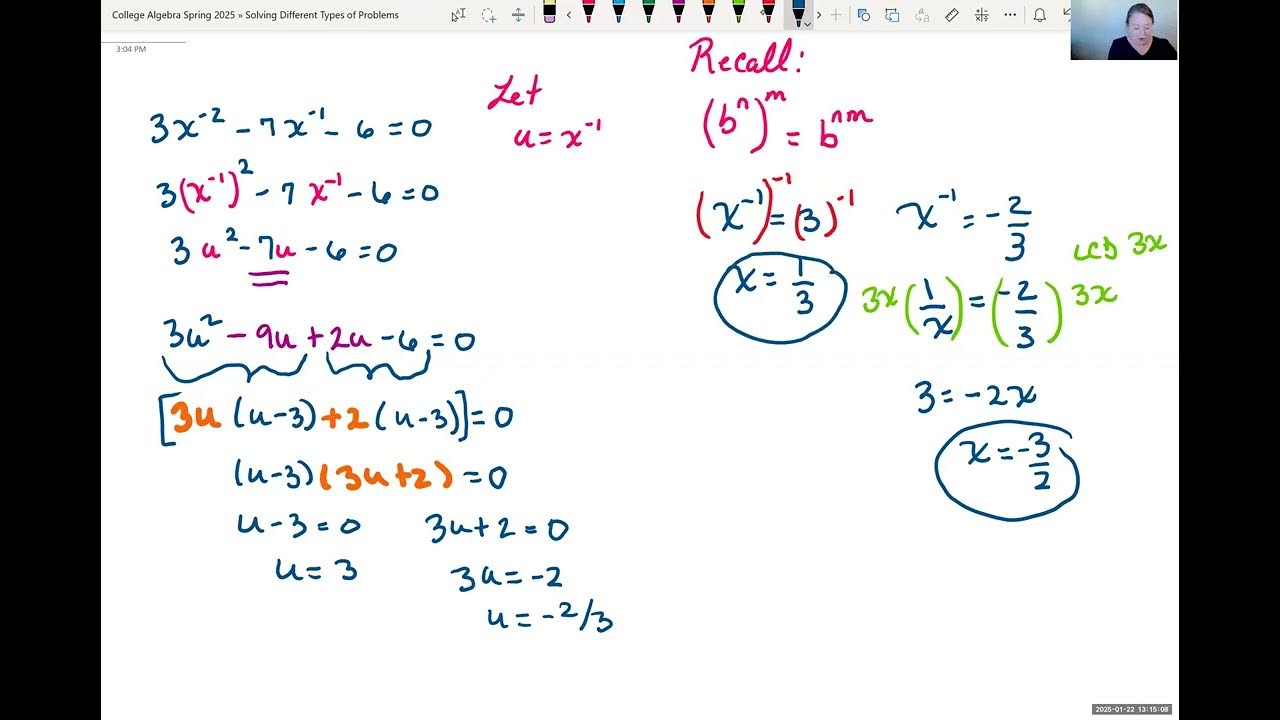 College Algebra Spring 2025 » Solving Different Types of Problems
3:04 PM
3x⁻² - 7x⁻¹ - 6 = 0
3(x⁻¹)² - 7x⁻¹ - 6 = 0
3u² - 7u - 6 = 0
3u² - 9u + 2u - 6 = 0
[3u(u-3) + 2(u-3)] = 0
(u-3)(3u+2) = 0
u - 3 = 0 3u + 2 = 0
u = 3 3u = -2
u = -2/3
Let
u = x⁻¹
Recall:
(bⁿ)ᵐ = bⁿᵐ
(x⁻¹)⁻¹ = (3)⁻¹
x = 1/3
x⁻¹ = -2/3
LCD 3x
3x(1/x) = (-2/3)3x
3 = -2x
x = -3/2
2025-01-22 13:15:08